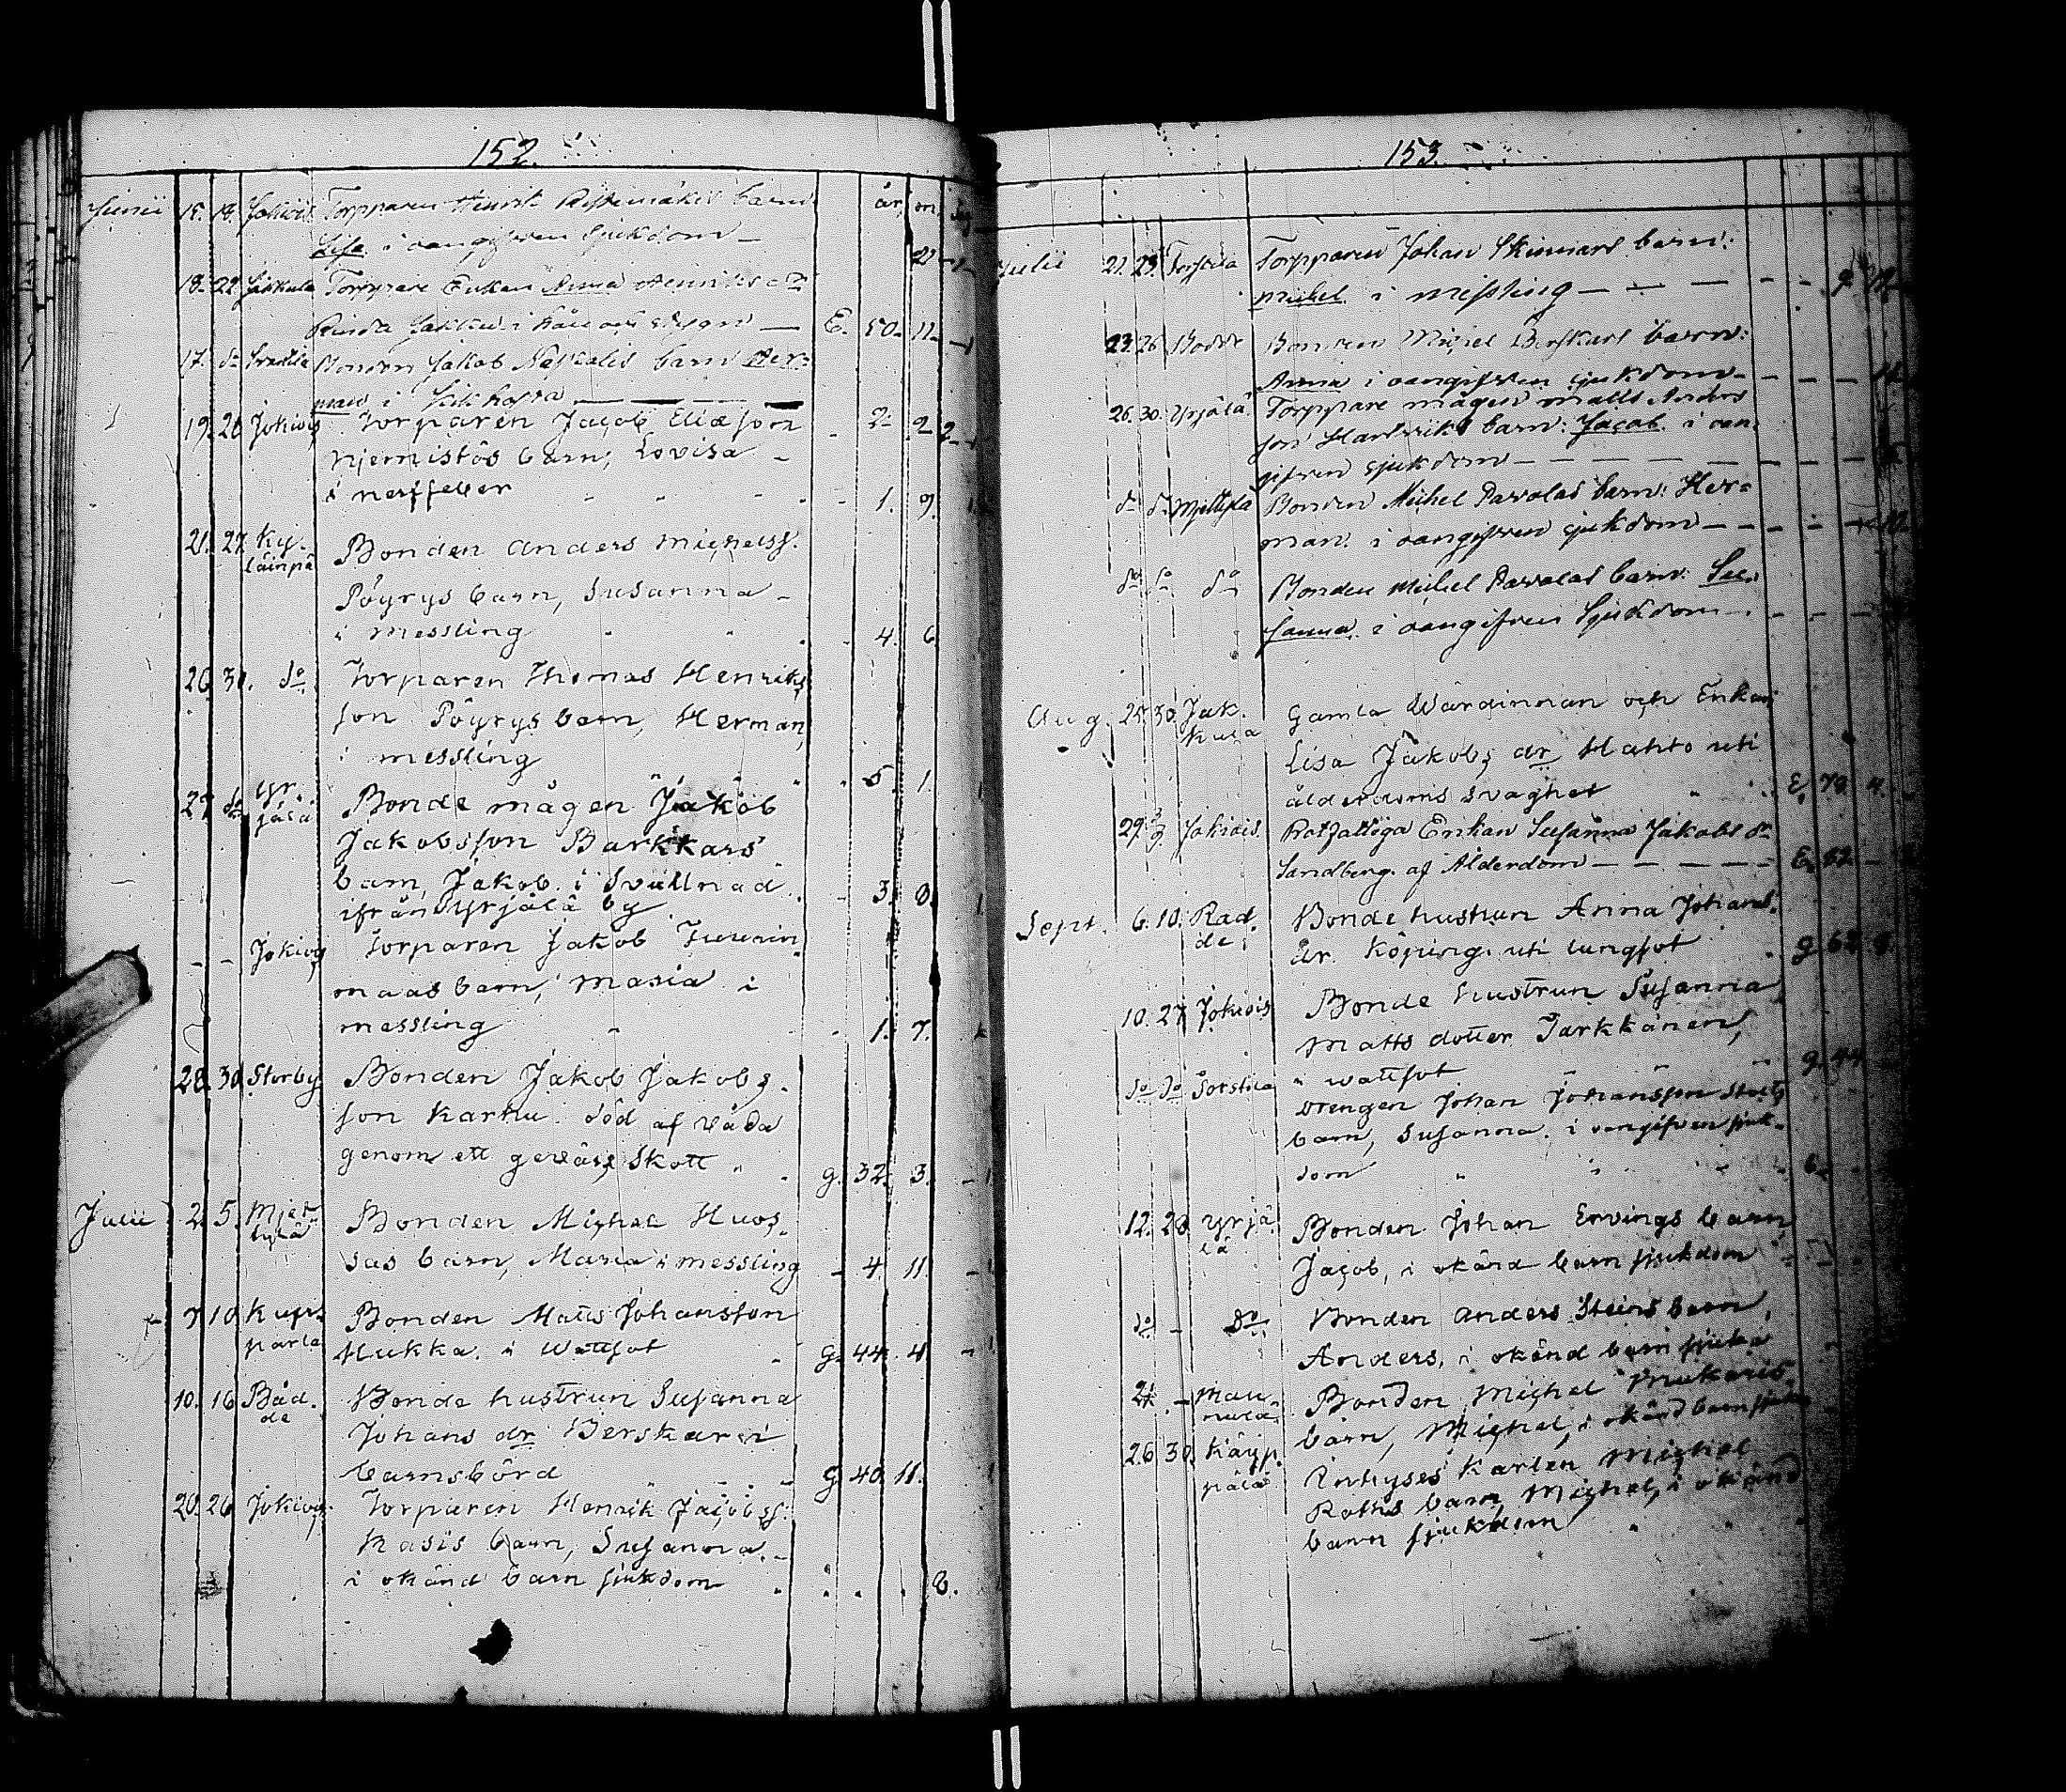 152.
år, m,
Junii 15. 18. Jokiois Torpparen Henrik barn
Lisa i oangifven Sjukdom —
18. 22. Jakkula Torppare Enkan Anna Henriks dr
i och Stygn — E. 50. 11.
17. do Bonden Jakob barn Her-
man i Kikhosta — 2. 2.
19. 26. Jokiois Torparen Jacob Eliæsson
Njemistös barn, Lovisa –
i nerffeber 1. 9.
21. 27. Ky-
läinpä Bonden Anders Michelss.
Pöyrys barn, Susanna –
i messling 4. 6.
26. 30. do Torparen Thomas Henriks
son Pöyrys barn, Herman,
i messling 5. 1.
29. do Yr-
jälä Bonde mågen Jakob
Jakobsson Barkkars
barn, Jakob. i Svullnad 3. 8.
ifrån Yrjälä by
– – Jokiog Torparen Jakob
maas barn, Maria i
messling 1. 7.
28. 30. Storby Bonden Jakob Jakobs-
son Karhu. död af våda
genom ett gevärs Skott g. 32. 3.
Julii 2. 5. Mjet-
tylä Bonden Michel Huos-
sas barn, Maria i messling 4. 11.
7. 10. Kupparla Bonden Matts Johansson
Hukka. i Wattsot g. 44. 4.
10. 16. Båd-
de Bonde hustrun Susanna
Johans dr Berskar i
barnsbörd g. 40. 11.
20. 26. Jokiog Torparen Henrik Jacobss.
Kasis barn, Susanna. –
i okänd barn sjukdom 8.
153.
Julii 21. 23. Torstila Torpparen Johan Skinnars barn:
Michel i messling — 9
23. 26. Badde Bonden Michel Berskars barn:
Anna i oangifven sjukdom —
26. 30. Yrjälä Torppare mågen Matts Anders
son Hartviks barn: Jacob. i oan-
gifven sjukdom —
do do Mjettylä Bonden Michel Parvolas barn: Her-
man. i oangifven sjukdom —
do do do Bonden Michel Parvolas barn: Su-
sanna. i oangifven Sjukdom —
Aug. 25. 30. Jak-
kula Gamla Wärdinnan och Enkan
Lisa Jakobs dr Hahto uti
ålderdoms svaghet E. 79. 4.
29. Jokiois. Rotfattiga Enkan Susanna Jakobs dr
Sandberg. af Ålderdom — E. 82
Sept. 6. 10. Rad-
de Bonde hustrun Anna Johans
dr. Köping. uti lungsot g. 62. 8.
10. 27. Jokiois Bonde hustrun Susanna
Matts dotter Jarkkanen,
i wattsot g. 44
do do Torstila Drengen Johan Johansson
barn, Susanna. i oangifven sjuk-
dom 6.
12. 28. Yrjä-
lä Bonden Johan Ervings barn,
Jacob, i okänd barn sjukdom
do – do Bonden Anders Steins barn,
Anders, i okänd barn sjukd
21. – Mau-
nula Bonden Michel Mukaris
barn, Michel, i okänd barn sjukdom
26. 30. Käyp-
pälä Inhyses Karlen Michel
Rothis barn, Michel, i okänd
barn sjukdom